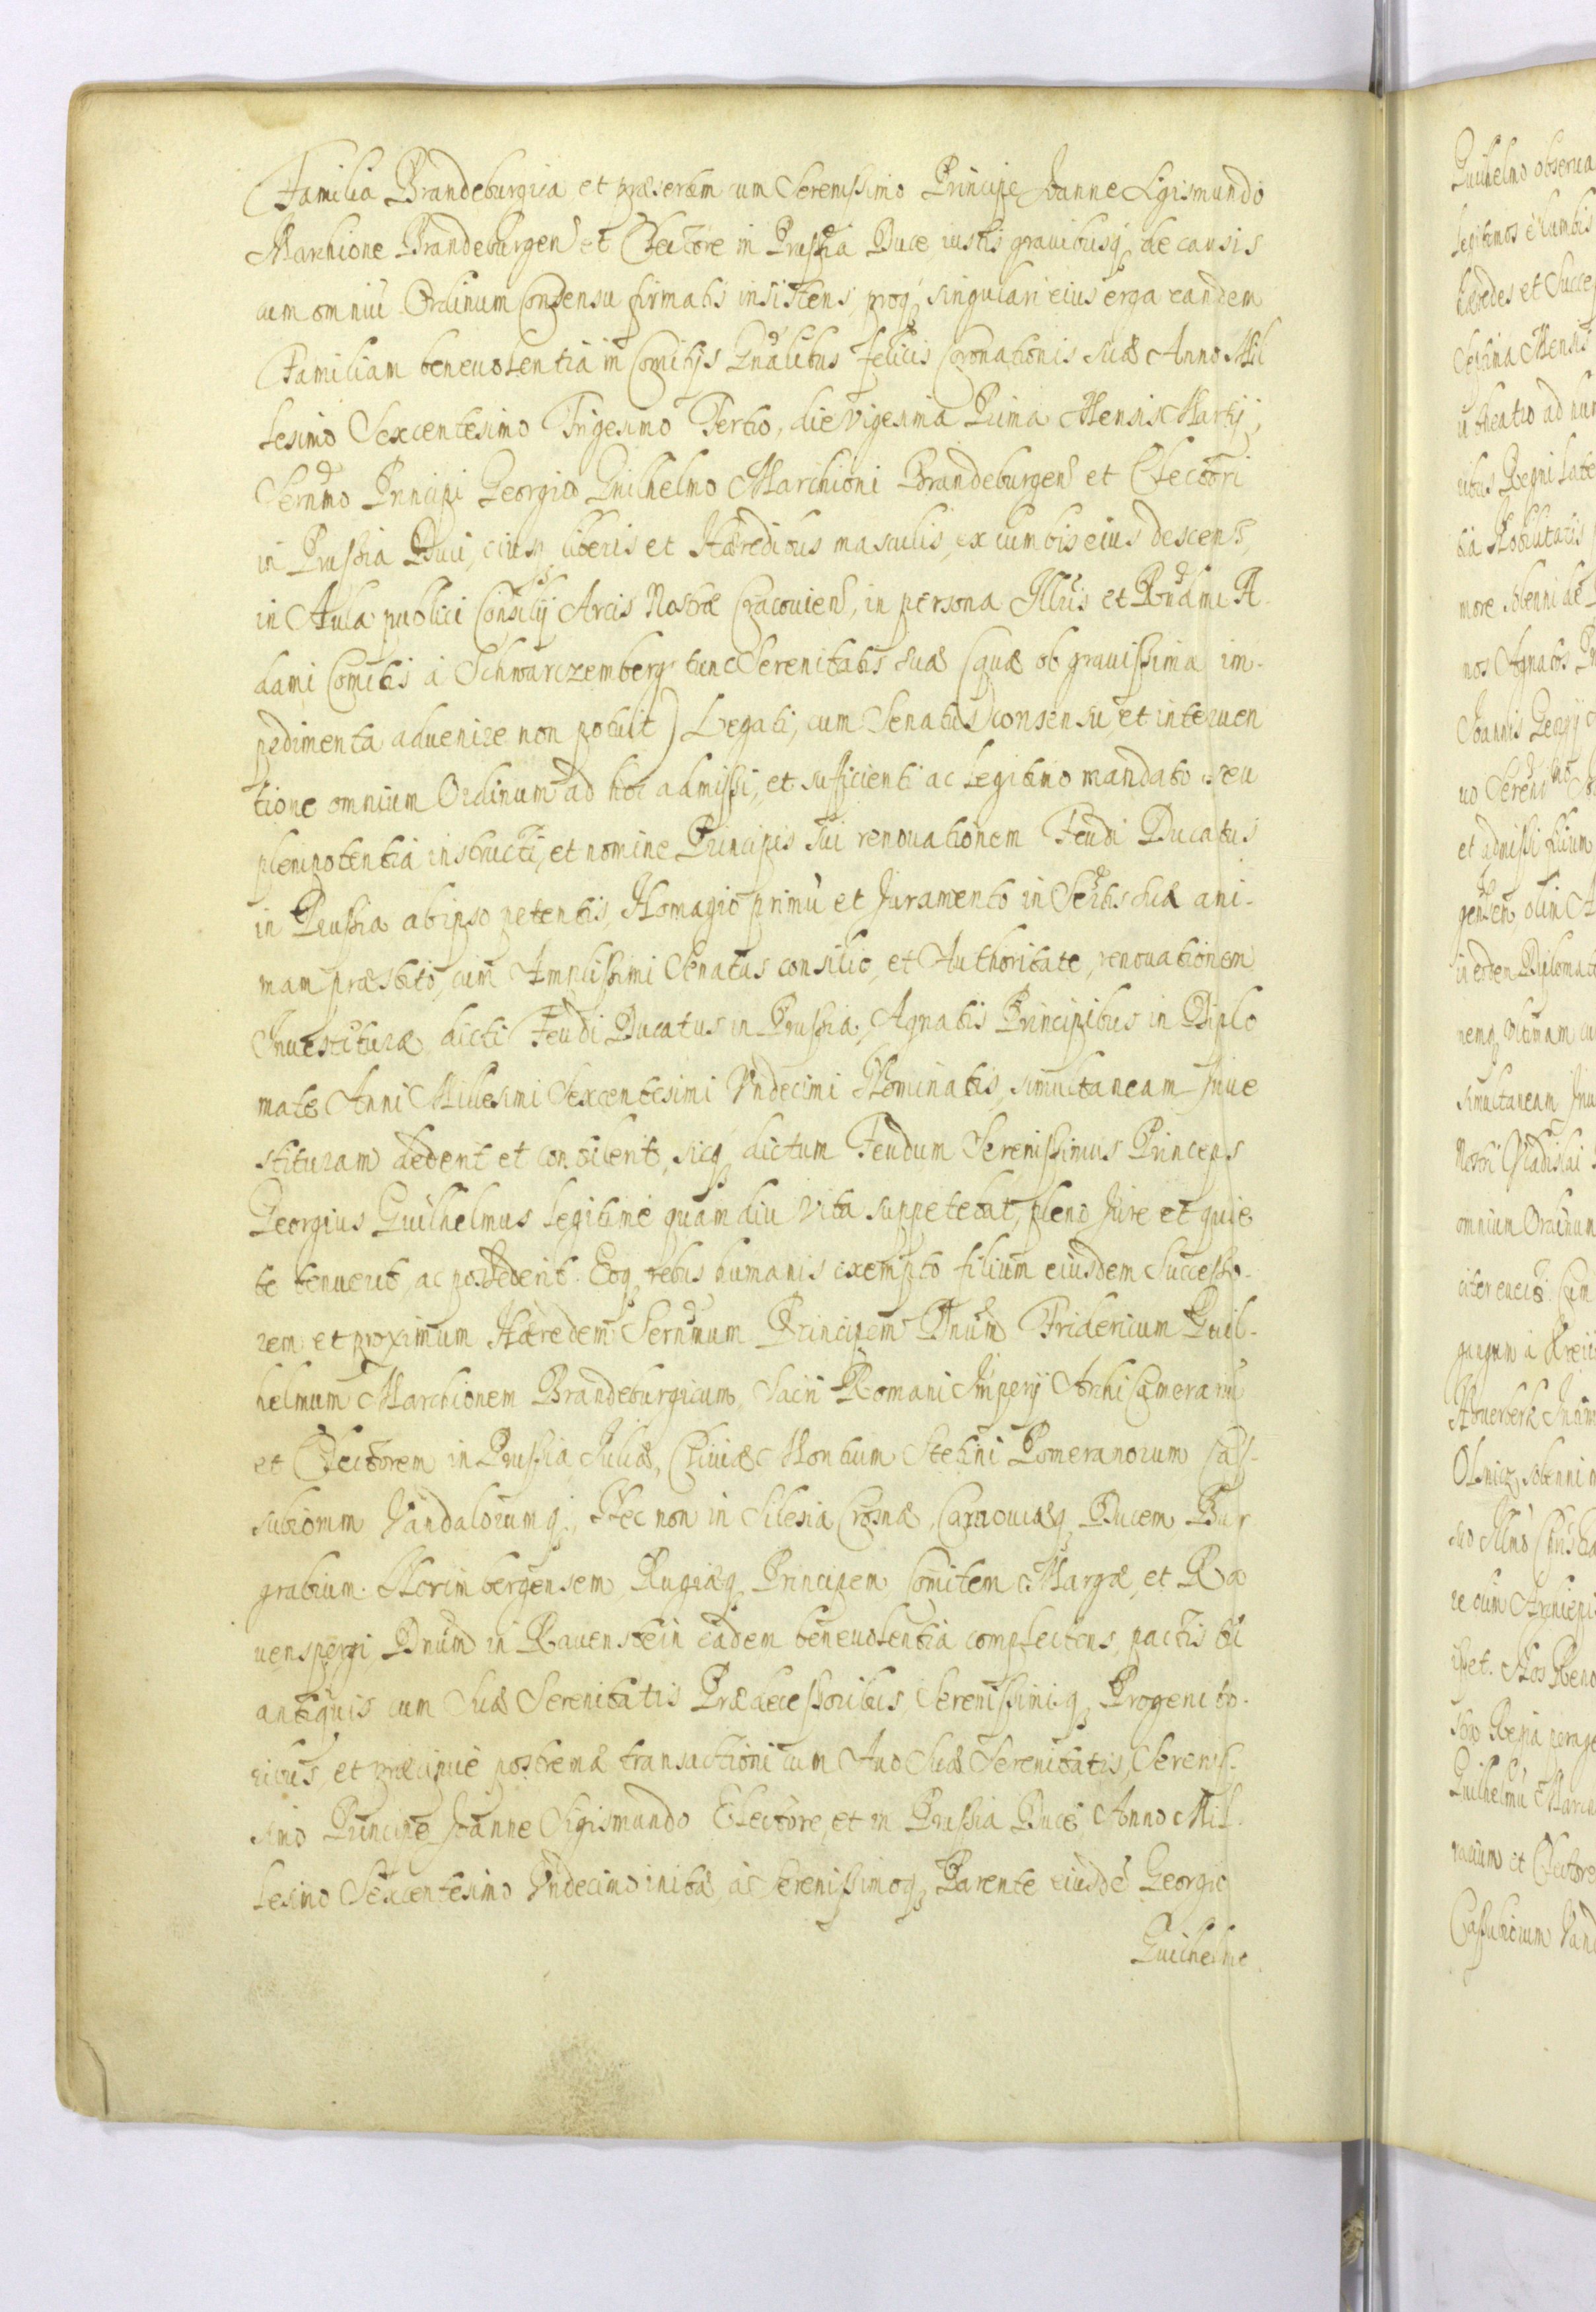 Familia Brandeburgica et præsertim cum Serenissimo Principe Joanne Sigismundo
Marchione Brandeburgen et Electore in Prussia Duce iustis grauibusq de causis
cum omniu Ordinum Consensu firmatis insistens, proq singulari eius erga eandem
Familiam beneuolentia in Comitijs Gnalibus felicis Coronationis suæ Anno Mil
lesimo Sexcentesimo Trigesimo Tertio, die vigesima Prima Mensis Martij,
Sernmo Principi Georgio Guilhelmo Marchioni Brandeburgen et Electori
in Prussia Duci, eiusq liberis et Hæredibus masculis, ex lumbis eius descent,
in Aula publici Consilij Arcis Nostræ Cracouien, in persona Illris et Rndmi A
dami Comitis à Schwarczemberg tunc Serenitatis suæ (quæ ob grauissima im-
pedimenta aduenire non potuit) Legati, cum Senatus consensu, et interuen
tione omnium Ordinum ad hoc admissi, et sufficienti ac legitimo mandato seu
plenipotentia instructi, et nomine Principis sui renouationem Feudi Ducatus
in Prussia ab ipso petentis, Homagio primu et Juramento in Sertis suæ ani-
mam præstito, cum Amplissimi Senatus consilio, et Authoritate, renouationem
Inuestituræ dicti Feudi Ducatus in Prussia, Agnatis Principibus in Diplo
mate Anni Millesimi Sexcentesimi Vndecimi Nominatis, simultaneam Inue
stituram dederit et contulerit, sicq dictum Feudum Serenissimus Princeps
Georgius Guilhelmus legitimè quamdiu vita suppetebat, pleno Jure et quie
te tenuerit, ac possederit. Eoq rebus humanis exempto filium eiusdem Successo-
rem et proximum Hæredem Sernmum Principem Dnum Fridericum Guil-
helmum Marchionem Brandeburgicum, Sacri Romani Imperij Archi Camerariu
et Electorem in Prussia, Juliæ, Cliuiæ Montium Stetini Pomeranorum Cas-
subiorum Vandalorumq, Nec non in Silesia Crosnæ, Carnouiæq Ducem, Bur
grabium Norimbergensem, Rugiæq Principem Comitem Margæ, et Ra
uenspergi Dnum in Rauenstein eadem beneuolentia complectens, pactis tu
antiquis cum Suæ Serenitatis Prædecessoribus, Serenissimisq Progenito-
ribus, et præcipuè postremæ transactioni cum Auo Suæ Serenitatis, Serenis-
simo Principe Joanne Sigismundo Electore, et in Prussia Duce Anno Mil-
lesimo Sexcentesimo Vndecimo initæ, ac Serenissimoq Parente eiusdē Georgio
Guilhelmo